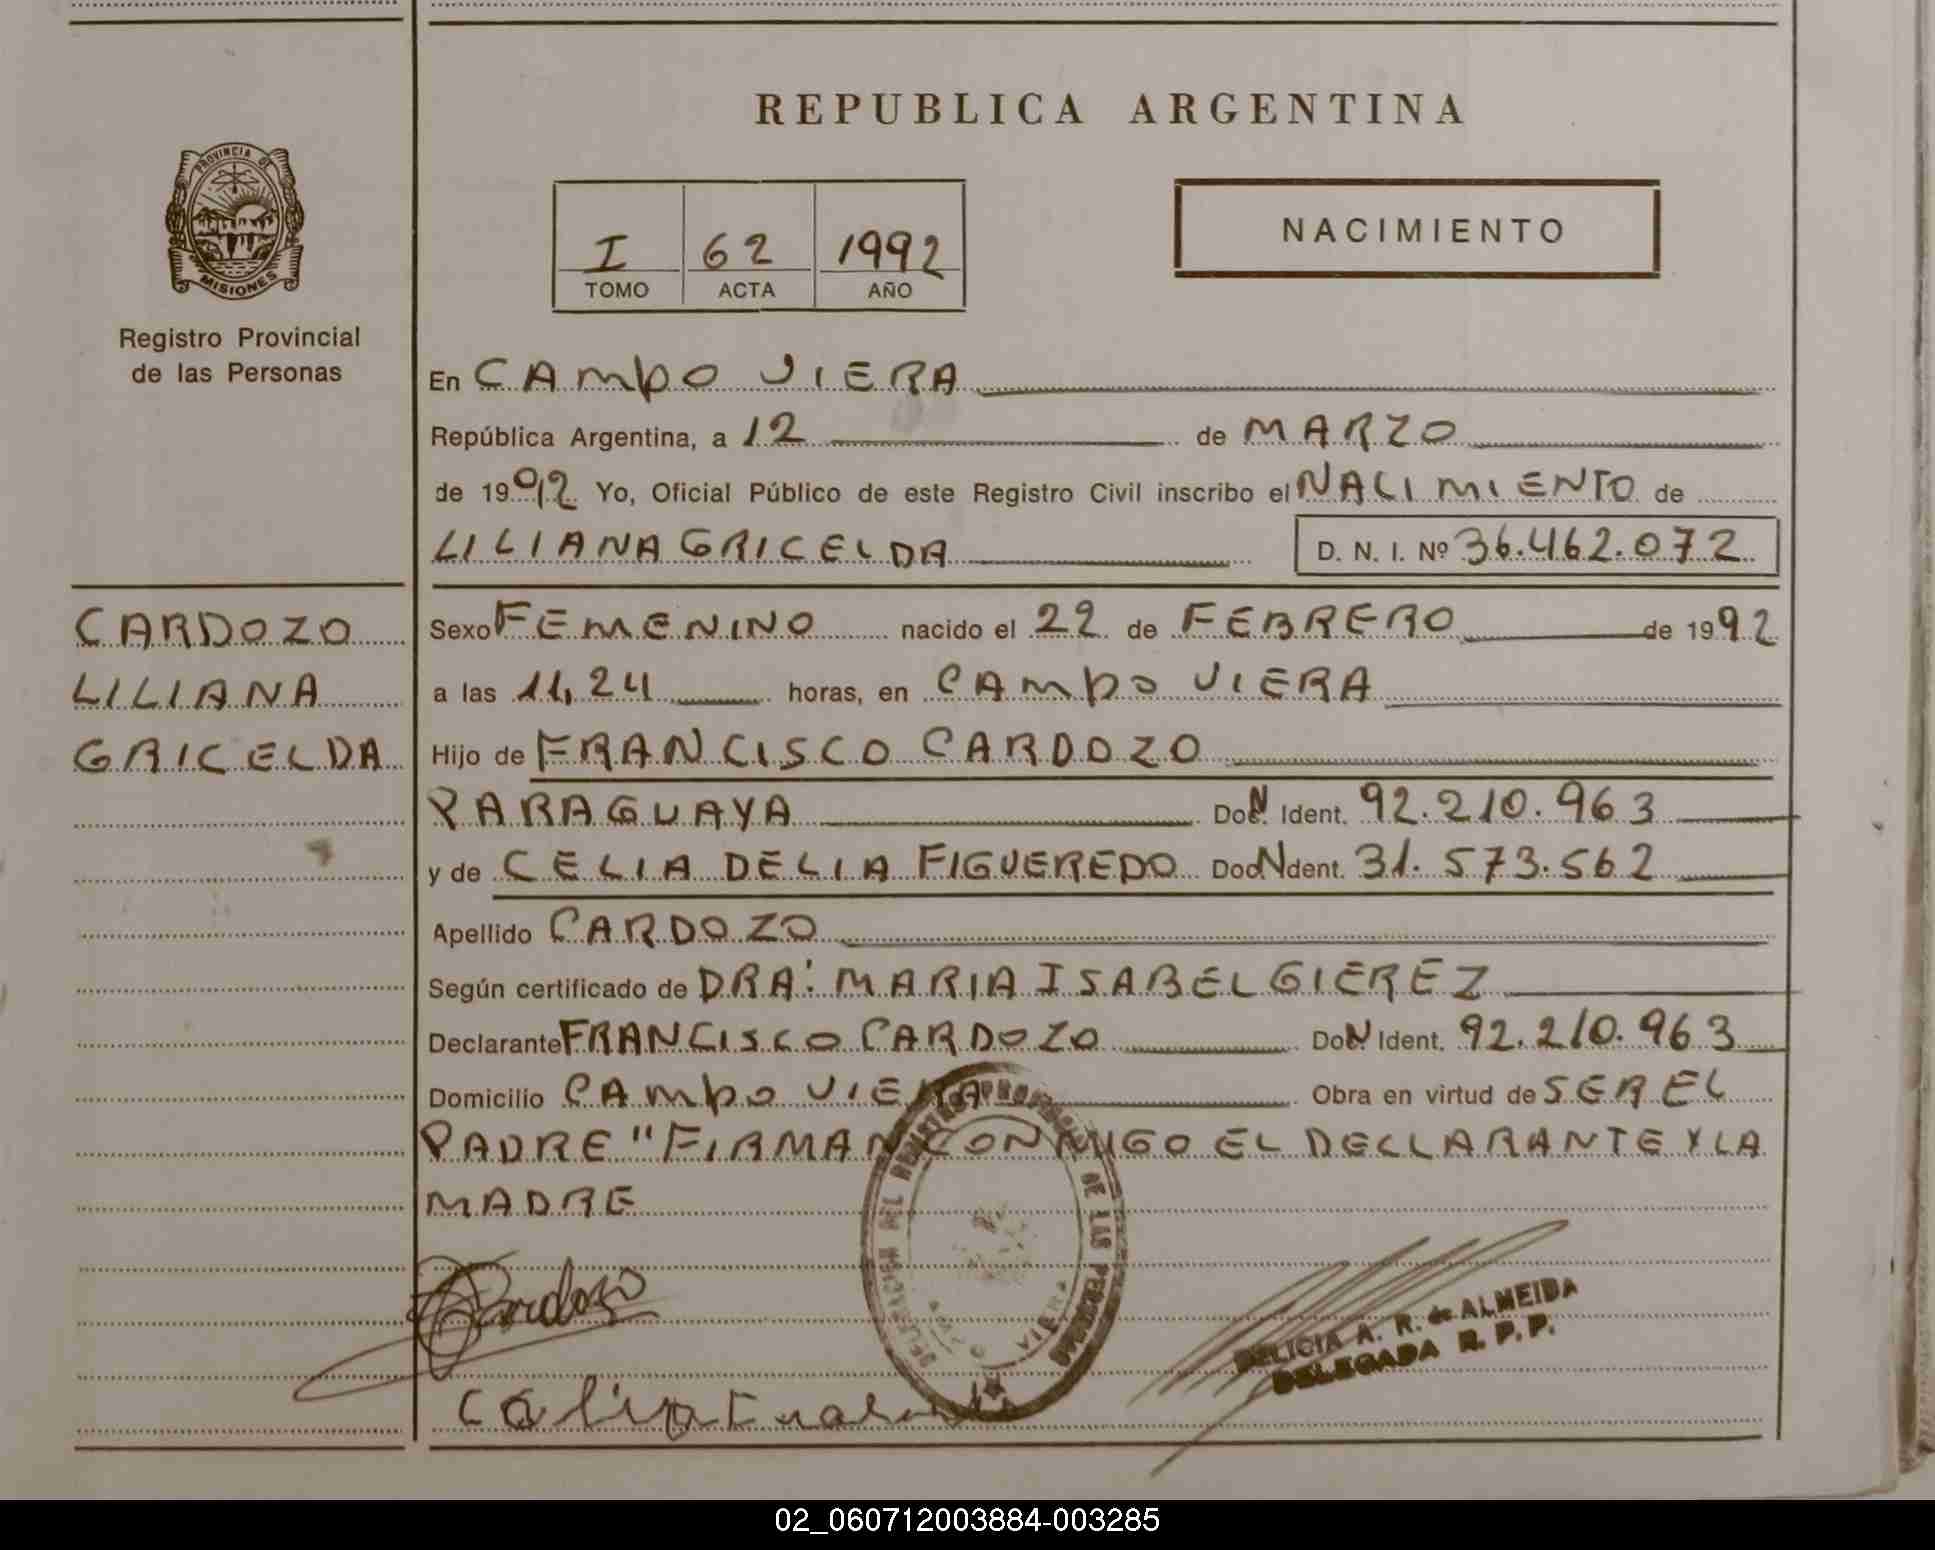 REPUBLICA ARGENTINA
PROVINCIA DE
MISIONES
Registro Provincial
de las Personas
NACIMIENTO
I 62 1992
TOMO ACTA AÑO
En CAMPO VIERA
República Argentina, a 12 de MARZO
de 1992 Yo, Oficial Público de este Registro Civil inscribo el NACIMIENTO de
LILIANA GRICELDA D. N. I. Nº 36.462.072
CARDOZO
LILIANA
GRICELDA
Sexo FEMENINO nacido el 22 de FEBRERO de 1992
a las 11,24 horas, en CAMPO VIERA
Hijo de FRANCISCO CARDOZO
PARAGUAYA Doc. N Ident. 92.210.963
y de CELIA DELIA FIGUEREDO Doc. N Ident. 31.573.562
Apellido CARDOZO
Según certificado de DRA: MARIA ISABEL GIEREZ
Declarante FRANCISCO CARDOZO Doc. N Ident. 92.210.963
Domicilio CAMPO VIERA Obra en virtud de SER EL
PADRE "FIRMAN CONMIGO EL DECLARANTE Y LA
MADRE
DELEGACION DEL REGISTRO PROVINCIAL DE LAS PERSONAS
VIERA
Cardozo
DELICIA A. R. de ALMEIDA
DELEGADA R. P. P.
02_060712003884-003285